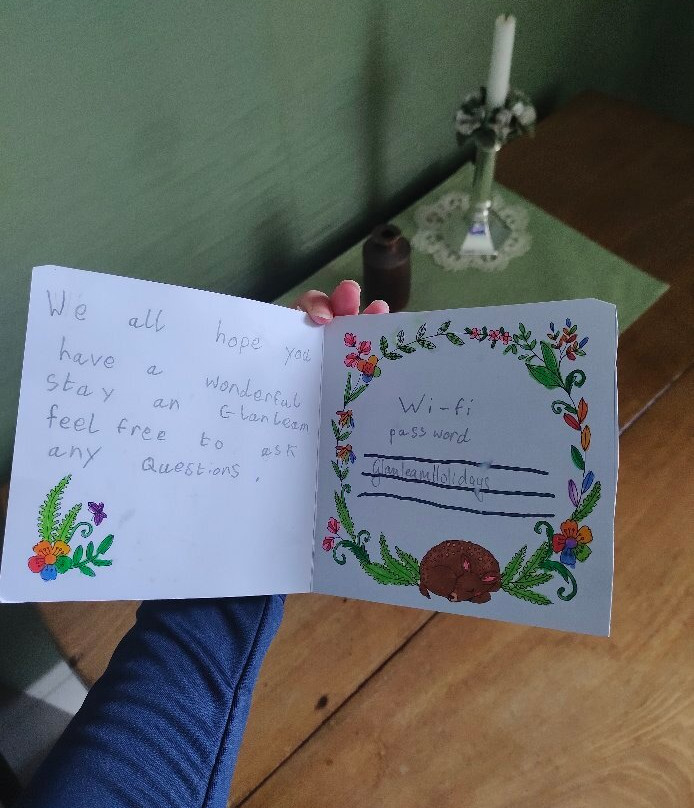 We all hope you
have a wonderful
stay an Glanleam
feel free to ask
any Questions.
Wi-fi
password
GlanleamHolidays